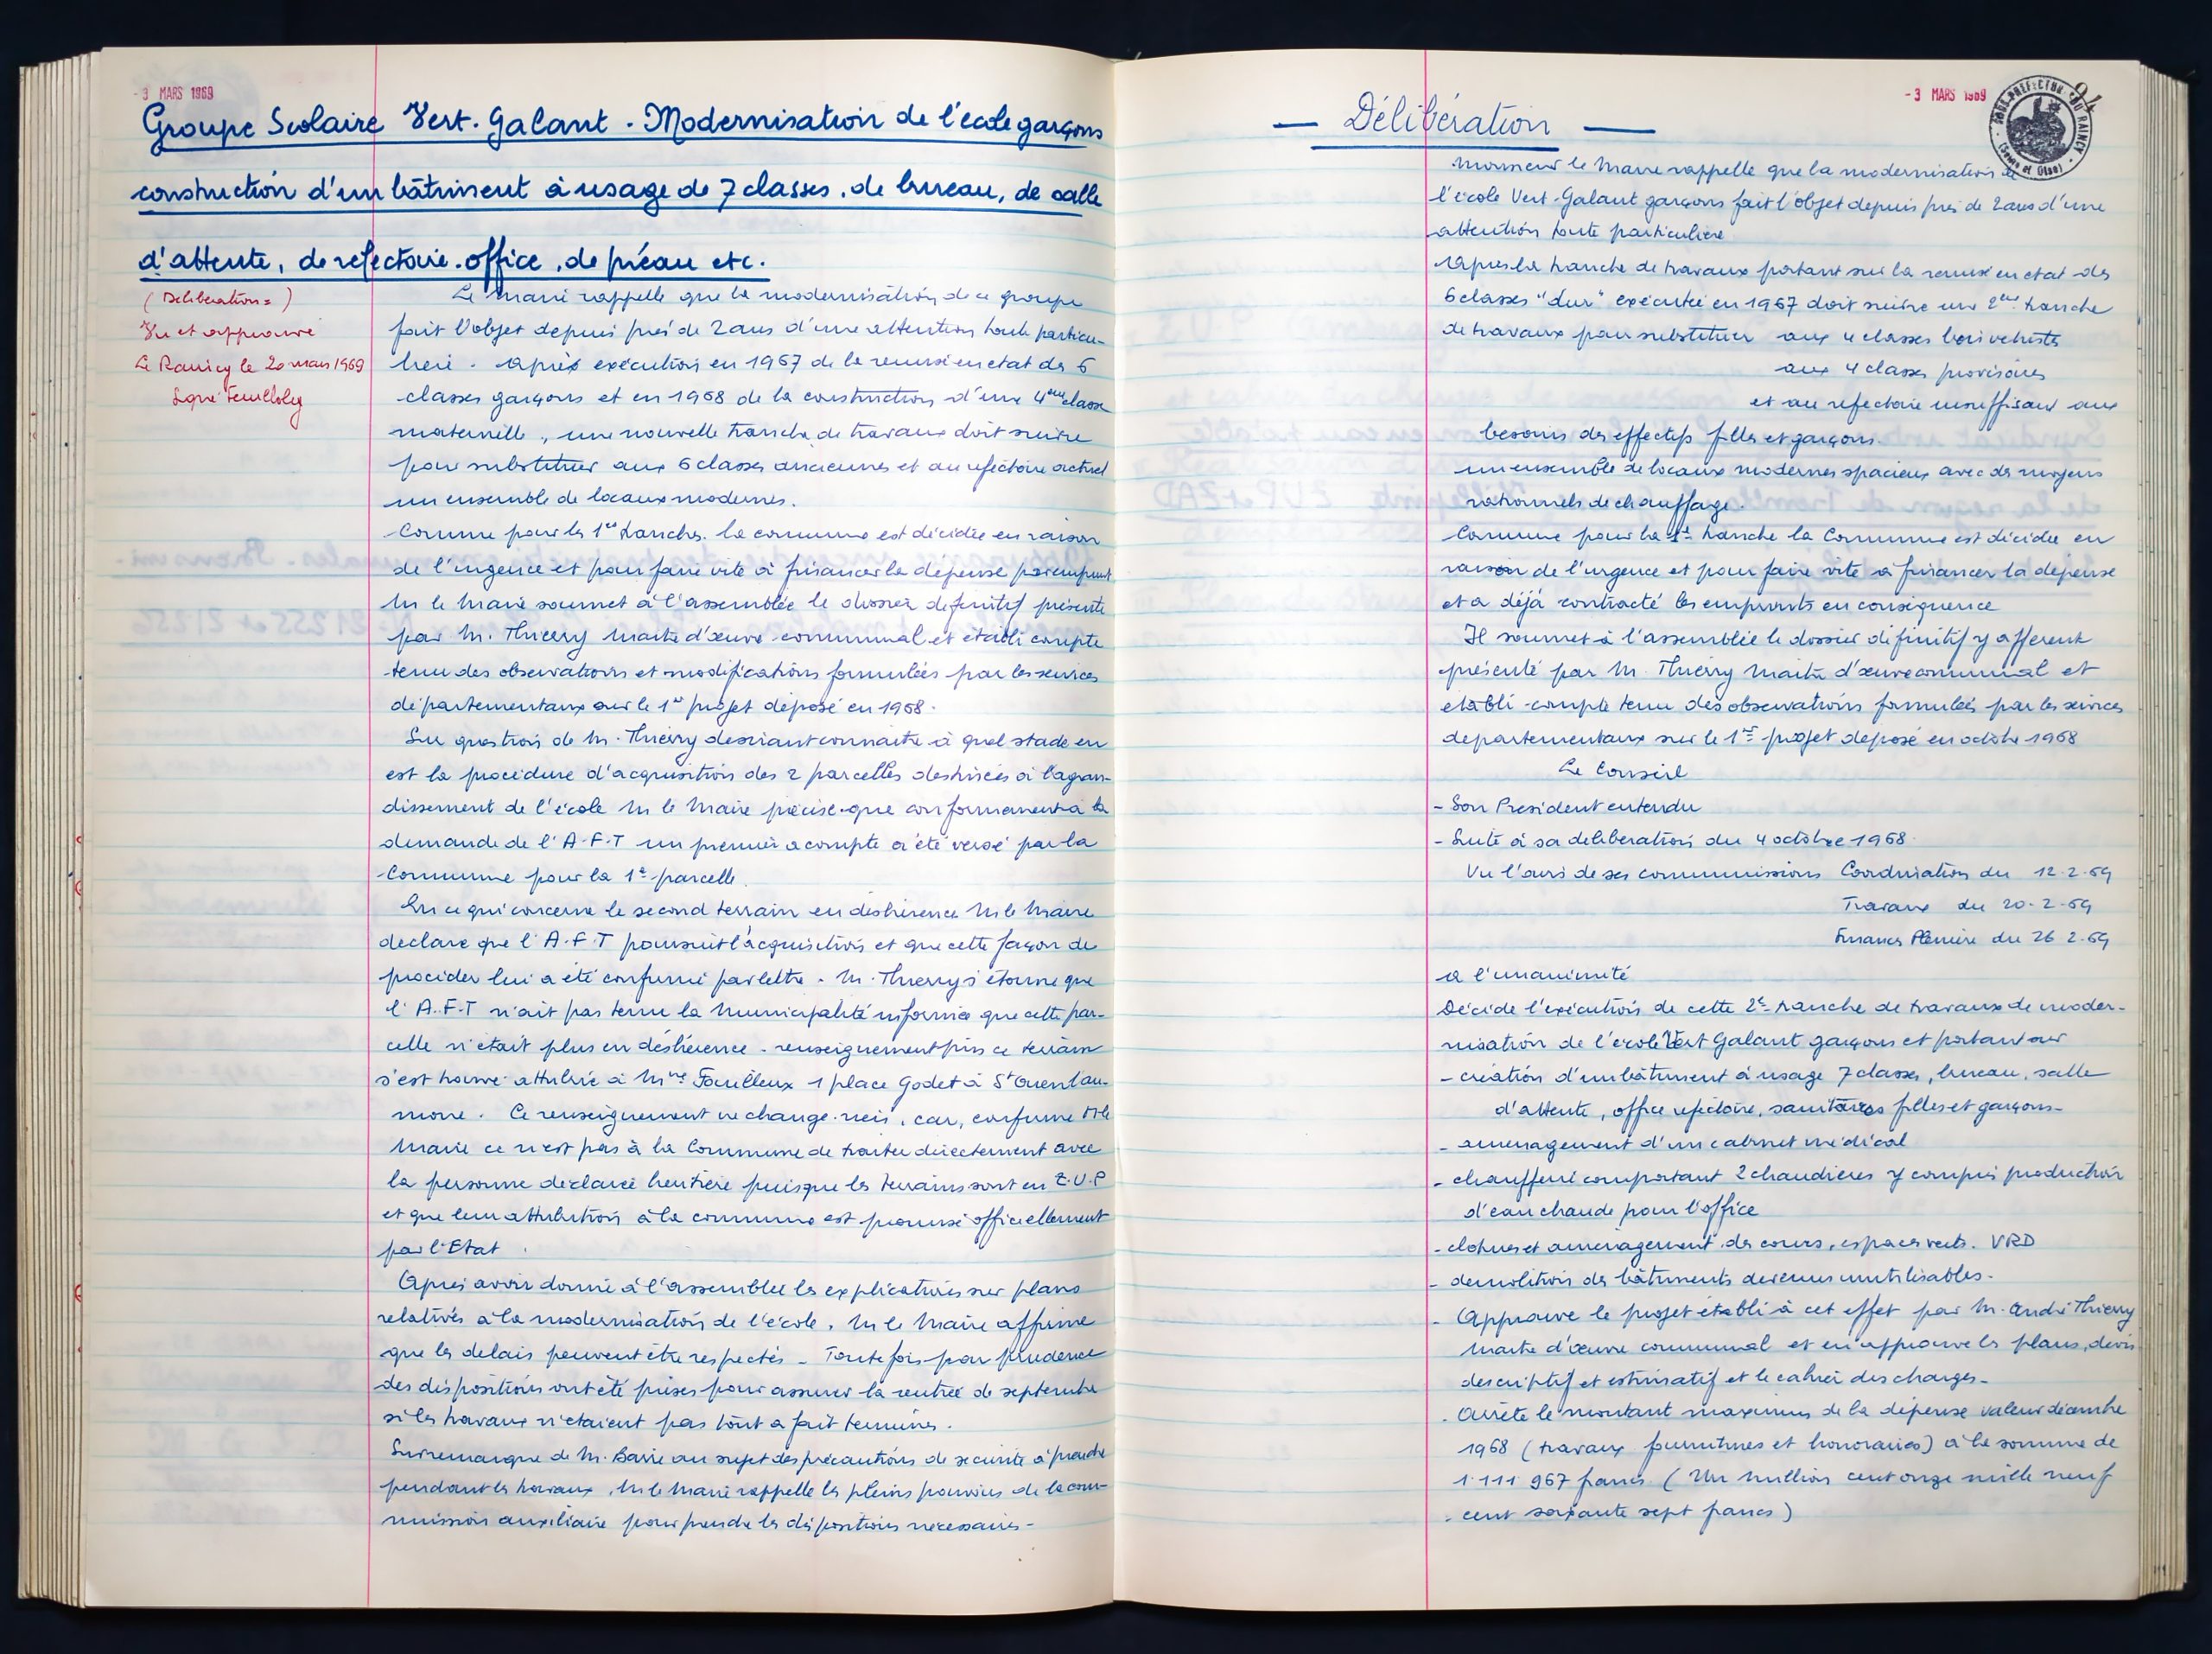 - 3 MARS 1969
Groupe Scolaire Vert-Galant - Modernisation de l'école garçons
construction d'un bâtiment à usage de 7 classes, de bureau, de salle
d'attente, de refectoire, office, de préau etc.
(Deliberation = )
Vu et approuvé
Le Raincy le 20 mars 1969
Signé
Le maire rappelle que la modernisation de ce groupe
fait l'objet depuis près de 2 ans d'une attention toute particu-
lière. après exécution en 1967 de la remise en etat des 6
classes garçons et en 1968 de la construction d'une 4eme classe
maternelle, une nouvelle tranche de travaux doit suivre
pour substituer aux 6 classes anciennes et au refectoire actuel
un ensemble de locaux modernes.
Comme pour les 1ères tranches, la commune est décidée en raison
de l'urgence et pour faire vite à financer la dépense par emprunt
M le Maire soumet à l'assemblée le dossier definitif présenté
par M. Thierry Maitre d'œuvre communal et établi compte
tenu des observations et modifications formulées par les services
départementaux sur le 1er projet déposé en 1968.
Sur question de M. Thierry desirant connaitre à quel stade en
est la procédure d'acquisition des 2 parcelles destinées à l'agran-
dissement de l'école M le Maire précise que conformement à la
demande de l'A.F.T un premier acompte a été versé par la
Commune pour la 1e parcelle.
En ce qui concerne le second terrain en deshérence M le Maire
declare que l'A.F.T poursuit l'acquisition et que cette façon de
procéder lui a été confirmé par lettre. M. Thierry s'étonne que
l'A.F.T n'ait pas tenu la Municipalité informée que cette par-
celle n'était plus en déshérence. renseignement pris ce terrain
s'est trouvé attribué à Mme Fouilleux 1 place Godet à St Ouen l'au-
mone. Ce renseignement ne change rien, car, confirme M le
Maire ce n'est pas à la Commune de traiter directement avec
la personne déclarée heritière puisque les terrains sont en Z.U.P
et que leur attribution à la commune est promise officiellement
par l'Etat.
Après avoir donné à l'assemblée les explications sur plans
relatives à la modernisation de l'école, M le Maire affirme
que les delais peuvent être respectés - Toutefois par prudence
des dispositions ont été prises pour assurer la rentrée de septembre
si les travaux n'étaient pas tout à fait terminés.
Sur remarque de M. Barre au sujet des précautions de sécurité à prendre
pendant les travaux, M le Maire rappelle les pleins pouvoirs de la com-
mission auxiliaire pour prendre les dispositions nécessaires -
- 3 MARS 1969
94
SOUS-PREFECTURE DU RAINCY
(Seine et Oise)
— Délibération —
Monsieur le Maire rappelle que la modernisation de
l'école Vert-Galant garçons fait l'objet depuis près de 2 ans d'une
attention toute particulière
Après la tranche de travaux portant sur la remise en etat des
6 classes "dur" exécutée en 1967 doit suivre une 2eme tranche
de travaux pour substituer aux 4 classes bois vetustes
aux 4 classes provisoires
et au refectoire insuffisant aux
besoins des effectifs filles et garçons.
un ensemble de locaux modernes spacieux avec des moyens
rationnels de chauffage.
Comme pour la 1e tranche la Commune est décidée en
raison de l'urgence et pour faire vite à financer la dépense
et a déjà contracté les emprunts en conséquence
Il soumet à l'assemblée le dossier définitif y afferent
présenté par M. Thierry Maitre d'œuvre communal et
établi compte tenu des observations formulées par les services
departementaux sur le 1er projet déposé en octobre 1968
Le Conseil
- Son President entendu
- Suite à sa deliberation du 4 octobre 1968.
Vu l'avis de ses commissions Coordination du 12.2.69
Travaux du 20.2.69
Finances Plenière du 26 2.69
à l'unanimité
Décide l'exécution de cette 2e tranche de travaux de moder-
nisation de l'école Vert Galant garçons et portant sur
- création d'un bâtiment à usage 7 classes, bureau, salle
d'attente, office refectoire, sanitaires filles et garçons -
- aménagement d'un cabinet médical
- chaufferie comportant 2 chaudières y compris production
d'eau chaude pour l'office
- clotures et aménagement des cours, espaces verts. VRD
- demolition des bâtiments devenus inutilisables.
- Approuve le projet établi à cet effet par M. André Thierry
Maitre d'œuvre communal et en approuve les plans, devis
descriptif et estimatif et le cahier des charges -
- Arrête le montant maximum de la dépense valeur décembre
1968 (travaux fournitures et honoraires) à la somme de
1.111 967 francs (Un million cent onze mille neuf
cent soixante sept francs)